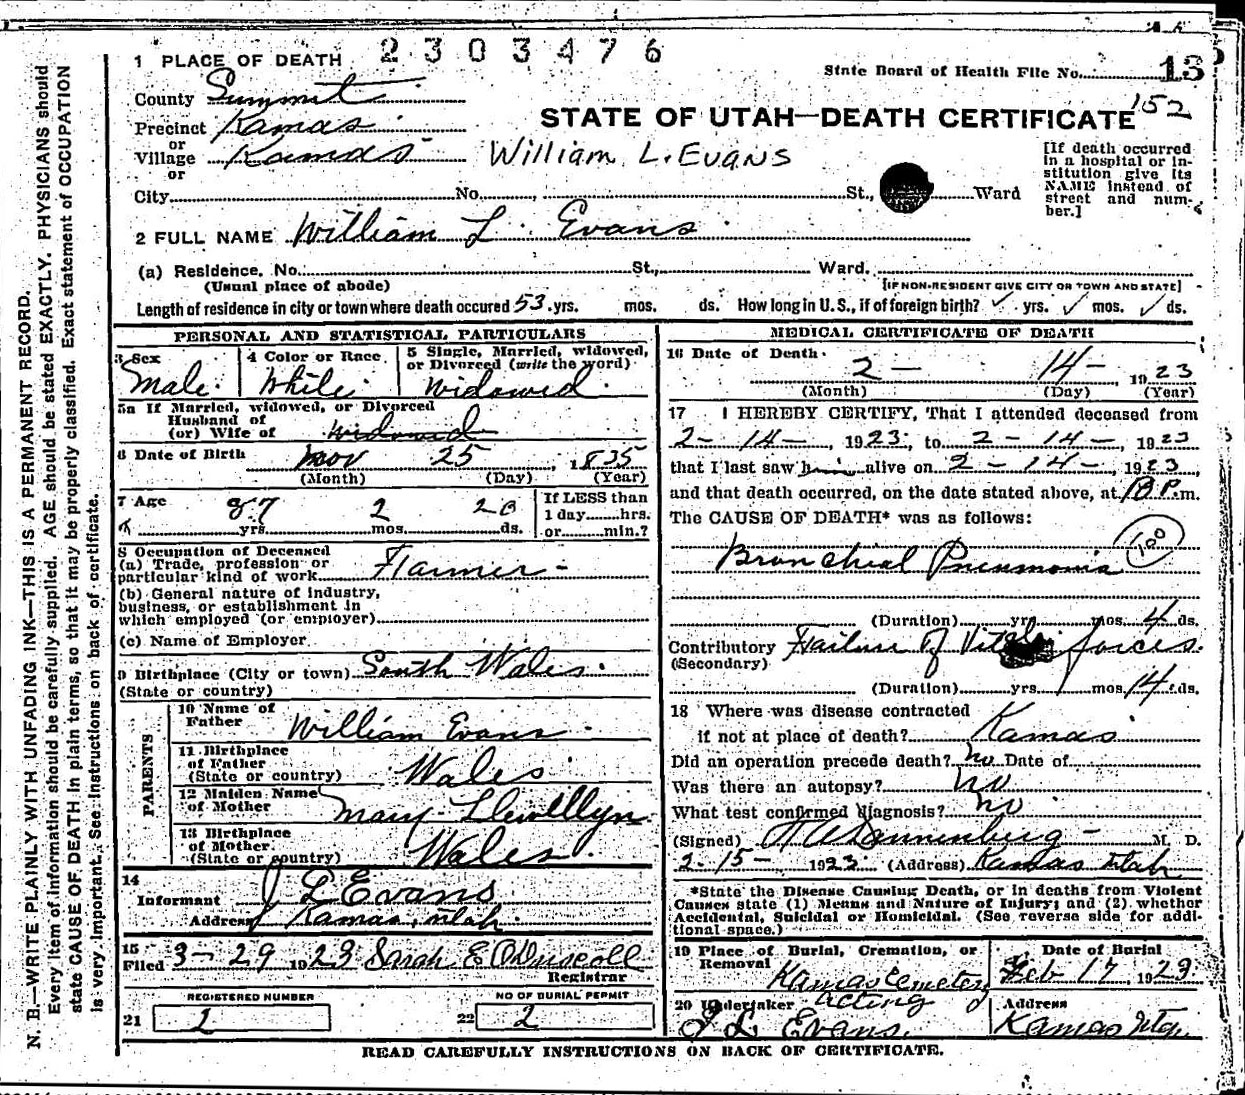 2303476
1 PLACE OF DEATH
State Board of Health File No. 13
152
County Summit
Precinct Kamas
or
Village Kamas
or
STATE OF UTAH—DEATH CERTIFICATE
William L. Evans
[If death occurred in a hospital or institution give its NAME instead of street and number.]
City No. St., Ward
2 FULL NAME William L. Evans
(a) Residence. No. St., Ward.
(Usual place of abode) [IF NON-RESIDENT GIVE CITY OR TOWN AND STATE]
Length of residence in city or town where death occured 53 yrs. mos. ds. How long in U.S., if of foreign birth? ✓ yrs. ✓ mos. ✓ ds.
PERSONAL AND STATISTICAL PARTICULARS
3 Sex
Male
4 Color or Race
White
5 Single, Married, widowed, or Divorced (write the word)
Widowed
5a If Married, widowed, or Divorced
Husband of
(or) Wife of widowed
6 Date of Birth Nov 25, 1835
(Month) (Day) (Year)
7 Age 87 yrs. 2 mos. ds.
If LESS than
1 day hrs.
or min.?
8 Occupation of Deceased
(a) Trade, profession or
particular kind of work Farmer -
(b) General nature of industry,
business, or establishment in
which employed (or employer)
(c) Name of Employer
9 Birthplace (City or town) South Wales.
(State or country)
PARENTS
10 Name of Father William Evans
11 Birthplace of Father
(State or country) Wales
12 Maiden Name of Mother Mary Llewellyn
13 Birthplace of Mother
(State or country) Wales.
14
Informant J L Evans
Address Kamas, Utah
15
Filed 3-29 1923 Sarah E O'Driscoll
Registrar
REGISTERED NUMBER
21 1
NO OF BURIAL PERMIT
22 2
MEDICAL CERTIFICATE OF DEATH
16 Date of Death
2- 14- 1923
(Month) (Day) (Year)
17 I HEREBY CERTIFY, That I attended deceased from
2-14-, 1923, to 2-14-, 1923
that I last saw him alive on 2-14-, 1923,
and that death occurred, on the date stated above, at P.m.
The CAUSE OF DEATH* was as follows:
Bronchial Pneumonia 100
(Duration) yrs. mos. 4 ds.
Contributory Failure of Vital forces.
(Secondary)
(Duration) yrs. mos. 14 ds.
18 Where was disease contracted
if not at place of death? Kamas
Did an operation precede death? no Date of
Was there an autopsy? No
What test confirmed diagnosis? no
(Signed) Dannenberg - M. D.
2-15- 1923 (Address) Kamas Utah
*State the Disease Causing Death, or in deaths from Violent
Causes state (1) Means and Nature of Injury; and (2) whether
Accidental, Suicidal or Homicidal. (See reverse side for addi-
tional space.)
19 Place of Burial, Cremation, or Removal
Kamas Cemetery
Date of Burial
Feb 17, 1923.
20 Undertaker acting
J L Evans.
Address
Kamas Utah
READ CAREFULLY INSTRUCTIONS ON BACK OF CERTIFICATE.
N. B.—WRITE PLAINLY WITH UNFADING INK—THIS IS A PERMANENT RECORD.
Every item of information should be carefully supplied. AGE should be stated EXACTLY. PHYSICIANS should
state CAUSE OF DEATH in plain terms, so that it may be properly classified. Exact statement of OCCUPATION
is very important. See instructions on back of certificate.